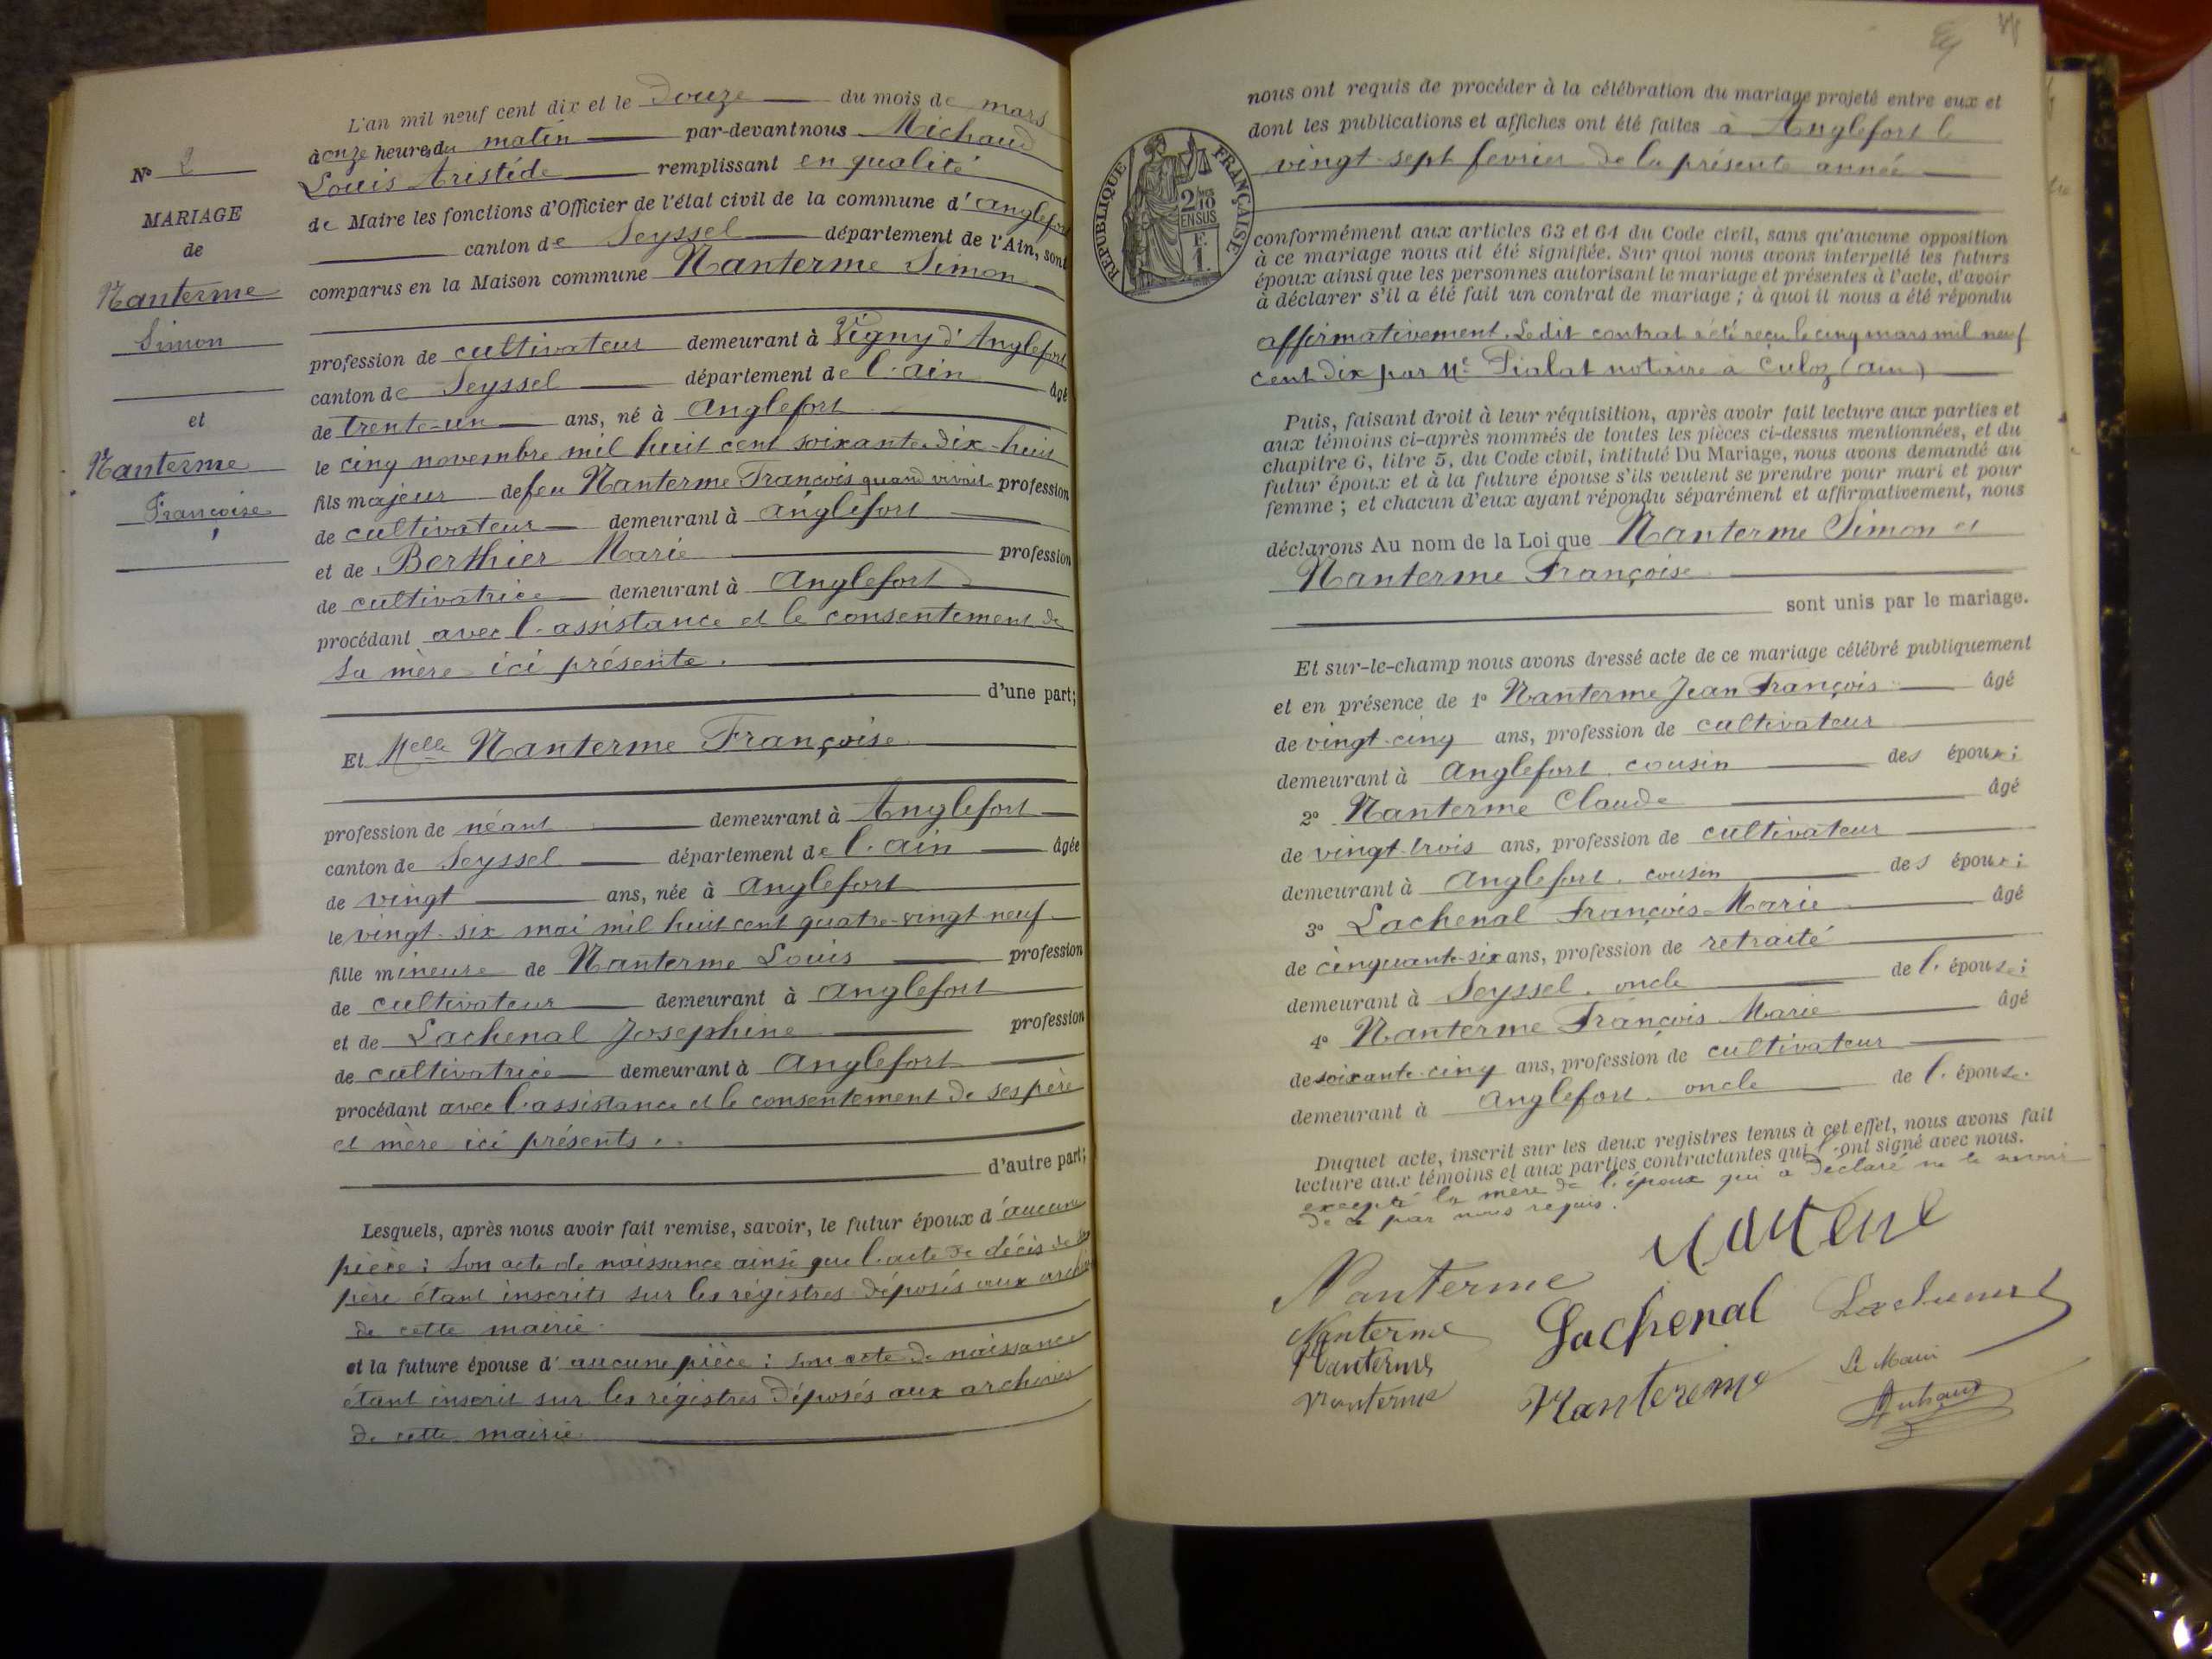 N° 2
MARIAGE
de
Nanterme
Simon
et
Nanterme
Françoise
L'an mil neuf cent dix et le douze du mois de mars
à onze heures du matin par-devant nous Michaud
Louis Aristide remplissant en qualité
de Maire les fonctions d'Officier de l'état civil de la commune d'Anglefort
canton de Seyssel département de l'Ain, sont
comparus en la Maison commune Nanterme Simon
profession de cultivateur demeurant à Vigny d'Anglefort
canton de Seyssel département de l'ain âgé
de trente-un ans, né à Anglefort
le cinq novembre mil huit cent soixante-dix-huit
fils majeur de feu Nanterme François quand vivait profession
de cultivateur demeurant à Anglefort
et de Berthier Marie profession
de cultivatrice demeurant à Anglefort
procédant avec l'assistance et le consentement de
sa mère ici présente.
d'une part;
Et Melle Nanterme Françoise
profession de néant demeurant à Anglefort
canton de Seyssel département de l'ain âgée
de vingt ans, née à Anglefort
le vingt-six mai mil huit cent quatre-vingt-neuf
fille mineure de Nanterme Louis profession
de cultivateur demeurant à Anglefort
et de Lachenal Josephine profession
de cultivatrice demeurant à Anglefort
procédant avec l'assistance et le consentement de ses père
et mère ici présents.
d'autre part;
Lesquels, après nous avoir fait remise, savoir, le futur époux d'aucune
pièce; son acte de naissance ainsi que l'acte de décès de son
père étant inscrits sur les régistres déposés aux archives
de cette mairie
et la future épouse d'aucune pièce; son acte de naissance
étant inscrit sur les régistres déposés aux archives
de cette mairie
nous ont requis de procéder à la célébration du mariage projeté entre eux et
dont les publications et affiches ont été faites à Anglefort le
vingt-sept fevrier de la présente année
RÉPUBLIQUE FRANÇAISE
2/10
EN SUS
F.
1.
conformément aux articles 63 et 64 du Code civil, sans qu'aucune opposition
à ce mariage nous ait été signifiée. Sur quoi nous avons interpellé les futurs
époux ainsi que les personnes autorisant le mariage et présentes à l'acte, d'avoir
à déclarer s'il a été fait un contrat de mariage; à quoi il nous a été répondu
affirmativement. Ledit contrat a été reçu le cinq mars mil neuf
cent dix par Me Pialat notaire à Culoz (ain)
Puis, faisant droit à leur réquisition, après avoir fait lecture aux parties et
aux témoins ci-après nommés de toutes les pièces ci-dessus mentionnées, et du
chapitre 6, titre 5, du Code civil, intitulé Du Mariage, nous avons demandé au
futur époux et à la future épouse s'ils veulent se prendre pour mari et pour
femme; et chacun d'eux ayant répondu séparément et affirmativement, nous
déclarons Au nom de la Loi que Nanterme Simon et
Nanterme Françoise
sont unis par le mariage.
Et sur-le-champ nous avons dressé acte de ce mariage célébré publiquement
et en présence de 1° Nanterme Jean François âgé
de vingt-cinq ans, profession de cultivateur
demeurant à Anglefort. cousin des époux;
2° Nanterme Claude âgé
de vingt-trois ans, profession de cultivateur
demeurant à Anglefort. cousin des époux;
3° Lachenal François-Marie âgé
de cinquante-six ans, profession de retraité
demeurant à Seyssel. oncle de l'épouse;
4° Nanterme François Marie âgé
de soixante-cinq ans, profession de cultivateur
demeurant à Anglefort. oncle de l'épouse.
Duquel acte, inscrit sur les deux registres tenus à cet effet, nous avons fait
lecture aux témoins et aux parties contractantes qui l'ont signé avec nous.
excepté la mère de l'époux qui a déclaré ne le savoir
de ce par nous requis.
Nanterme
Nanterme Lachenal
Nanterme
Nanterme Nanterme
Le Maire